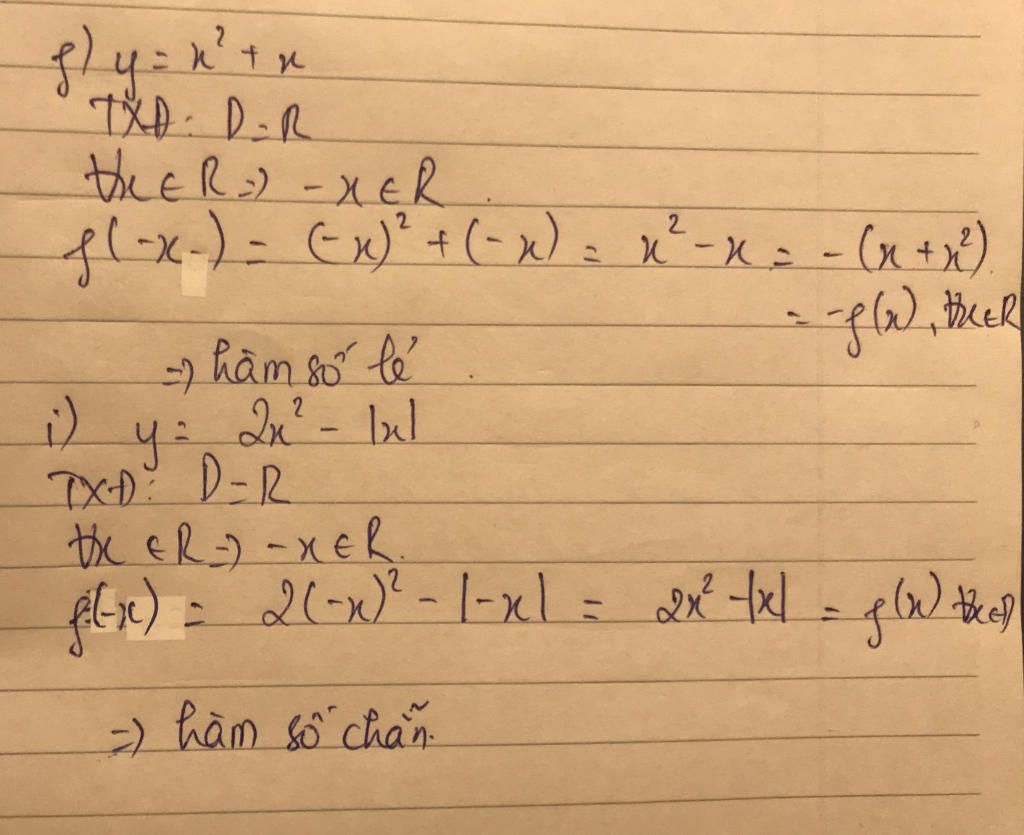 f) y = x² + x
TXĐ: D = R
∀x ∈ R => -x ∈ R.
f(-x) = (-x)² + (-x) = x² - x = -(x + x²).
= -f(x), ∀x∈R
=> hàm số lẻ.
i) y = 2x² - |x|
TXĐ: D = R
∀x ∈ R => -x ∈ R.
f(-x) = 2(-x)² - |-x| = 2x² - |x| = f(x) ∀x∈D
=> hàm số chẵn.